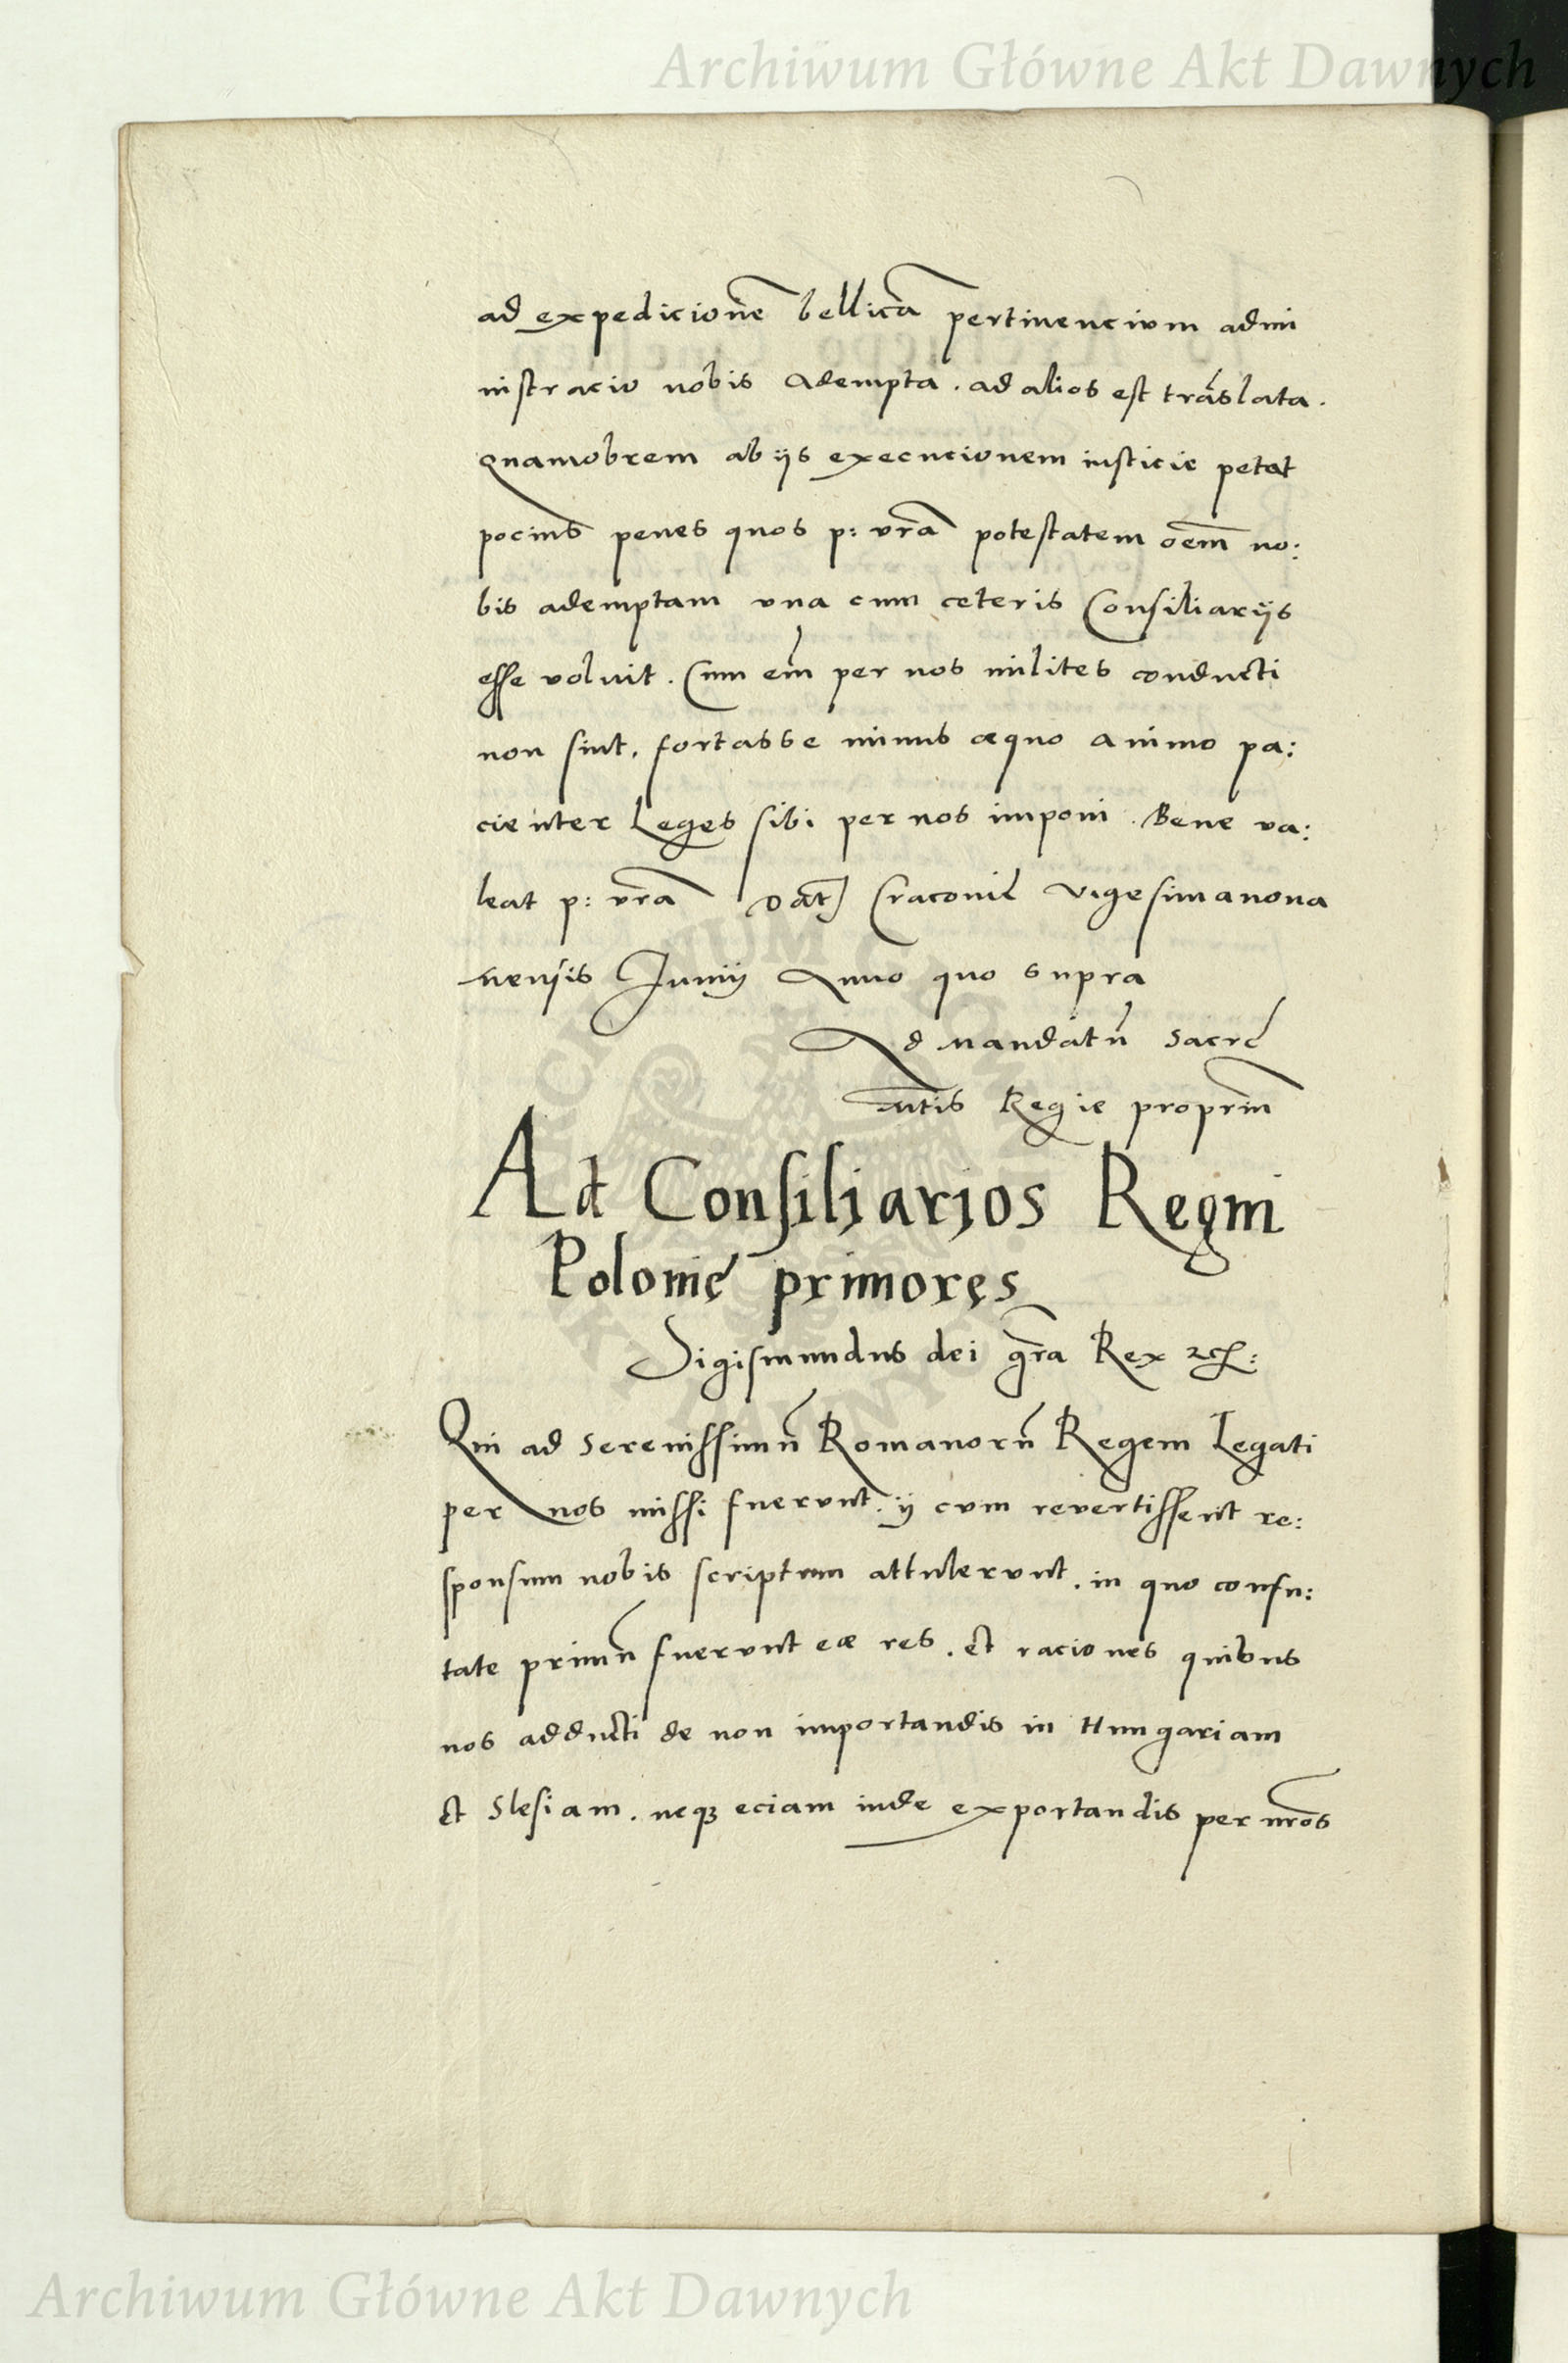 Archiwum Główne Akt Dawnych
ad expedicionē bellicā pertinencium admi
nistracio nobis adempta. ad alios est trāslata.
quamobrem ab ijs execucionem iusticie petat
pocius penes quos p: vrā potestatem oēm no:
bis ademptam vna cum ceteris Consiliarijs
esse voluit. Cum em̄ per nos milites conducti
non sint, fortasse minus æquo animo pa:
cienter Leges sibi per nos imponi. Bene va:
leat p: vrā Dat Cracovie Vigesimanona
mensis Junij Anno quo supra
Ad mandatū sacre
mtis Regie propriu
Ad Consiliarios Regni
Polonię primores
Sigismundus dei grā Rex etc:
Qui ad serenissimū Romanorū Regem Legati
per nos missi fuerunt. ij cum revertissent re:
sponsum nobis scriptum attulerunt. in quo confu:
tate primū fuerunt eæ res. et raciones quibus
nos adducti de non importandis in Hungariam
et Slesiam. neq3 eciam inde exportandis per nr̄os
Archiwum Główne Akt Dawnych